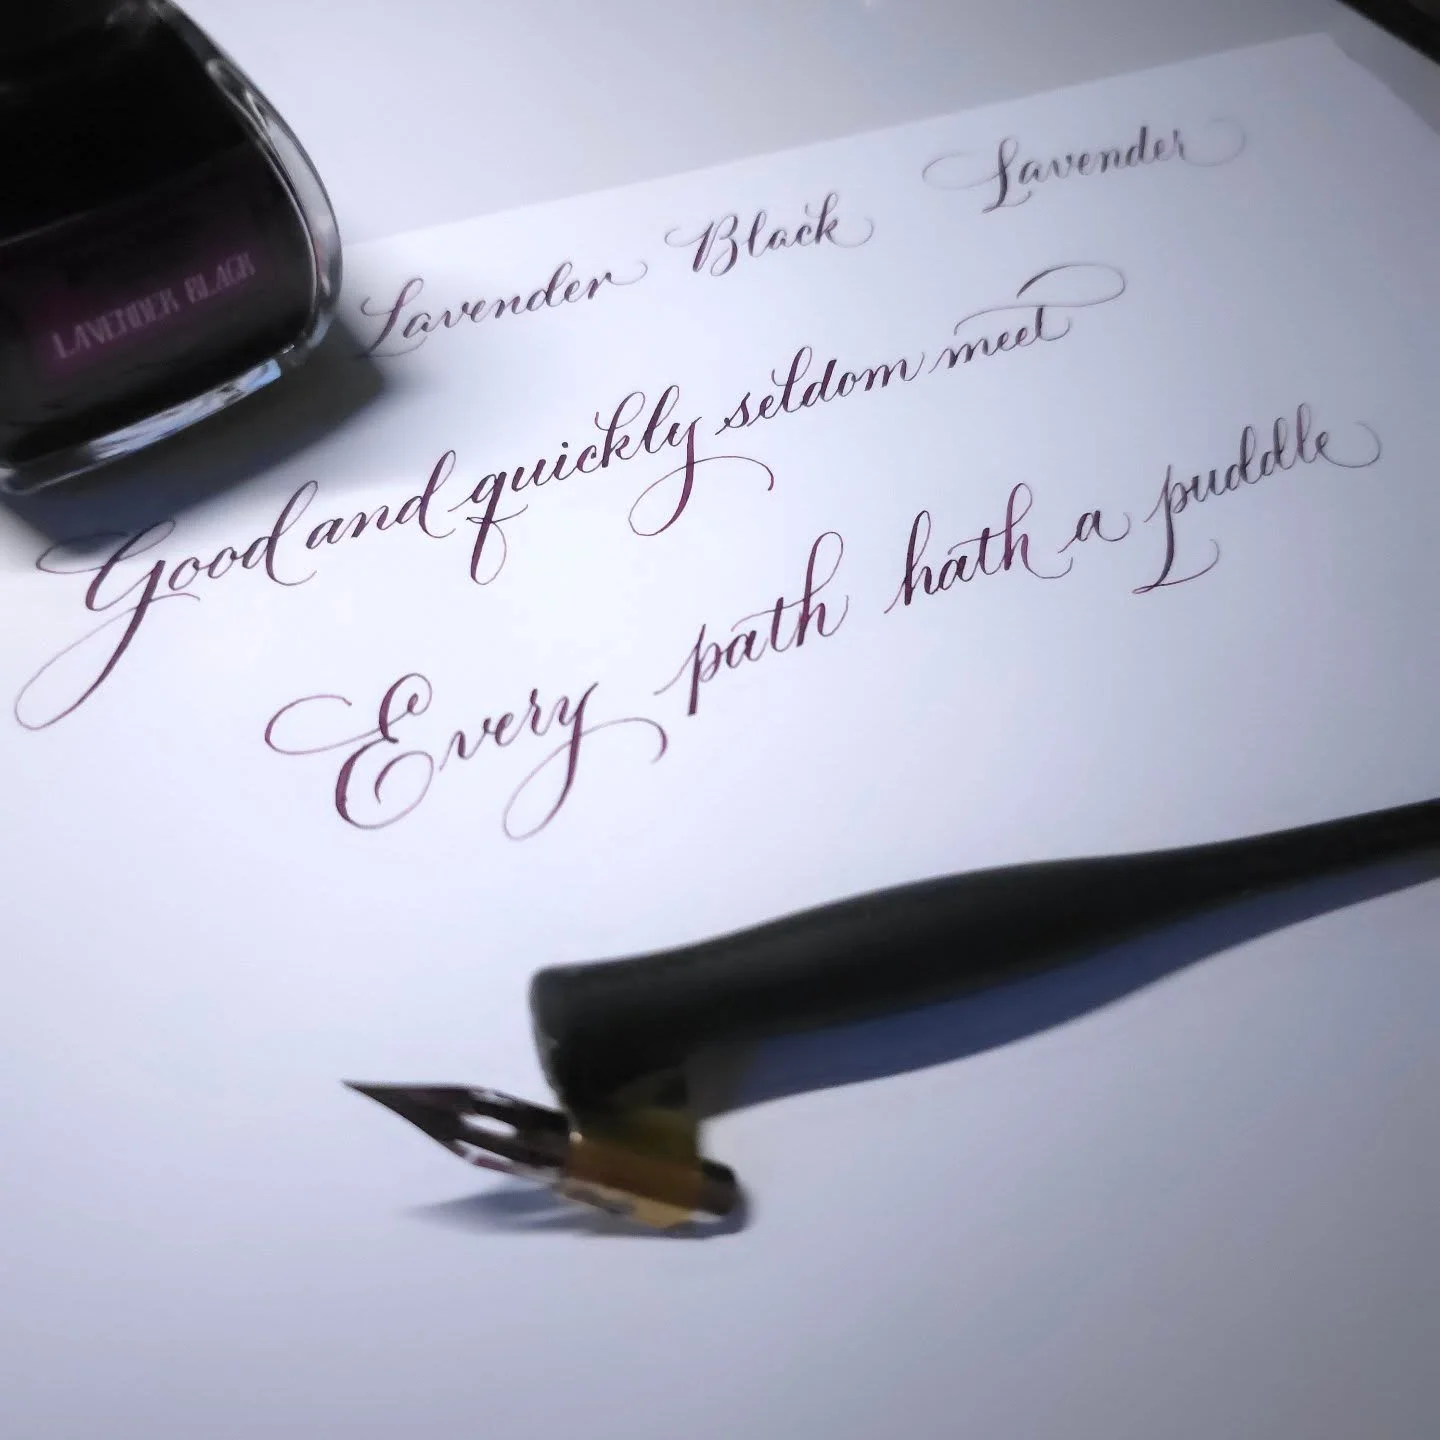 LAVENDER BLACK
Lavender Black Lavender
Good and quickly seldom meet
Every path hath a puddle